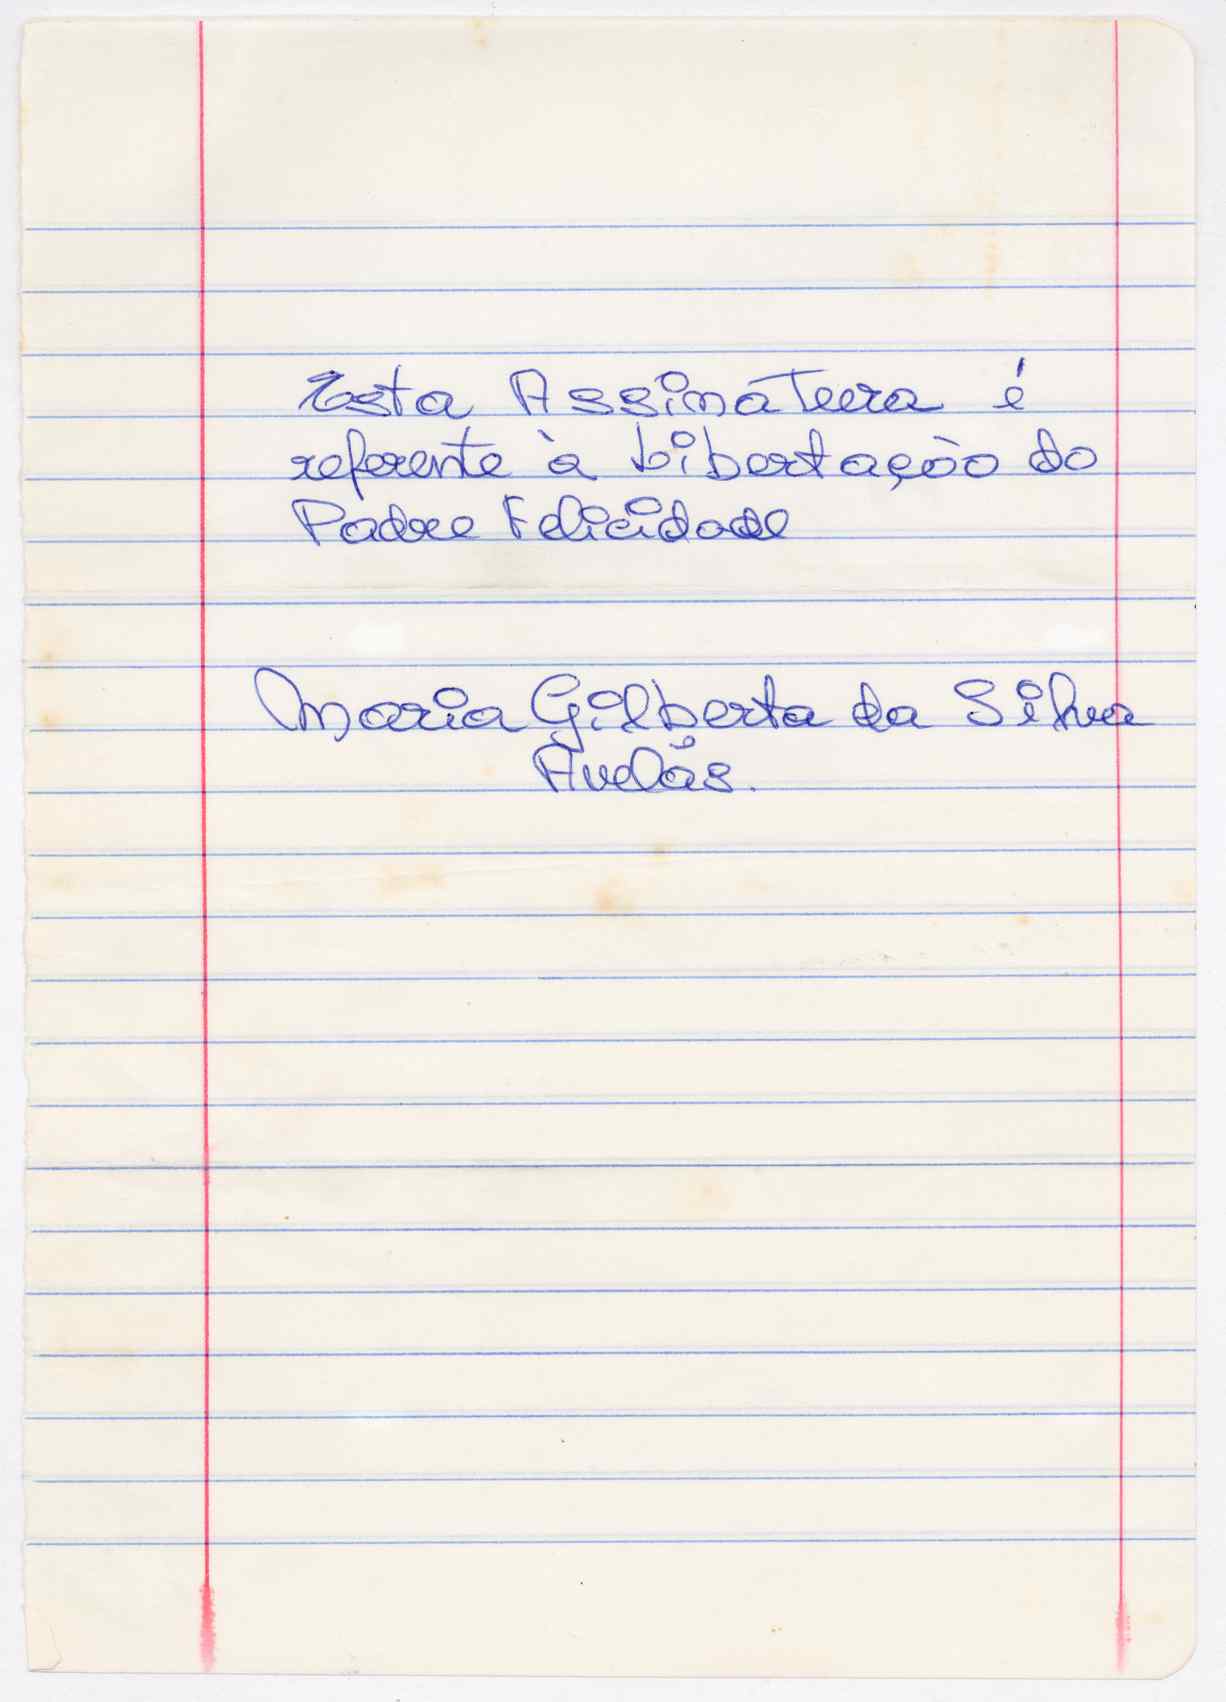 Esta Assinatura é
referente à Libertação do
Padre Felicidade
Maria Gilberta da Silva
Avelãs.